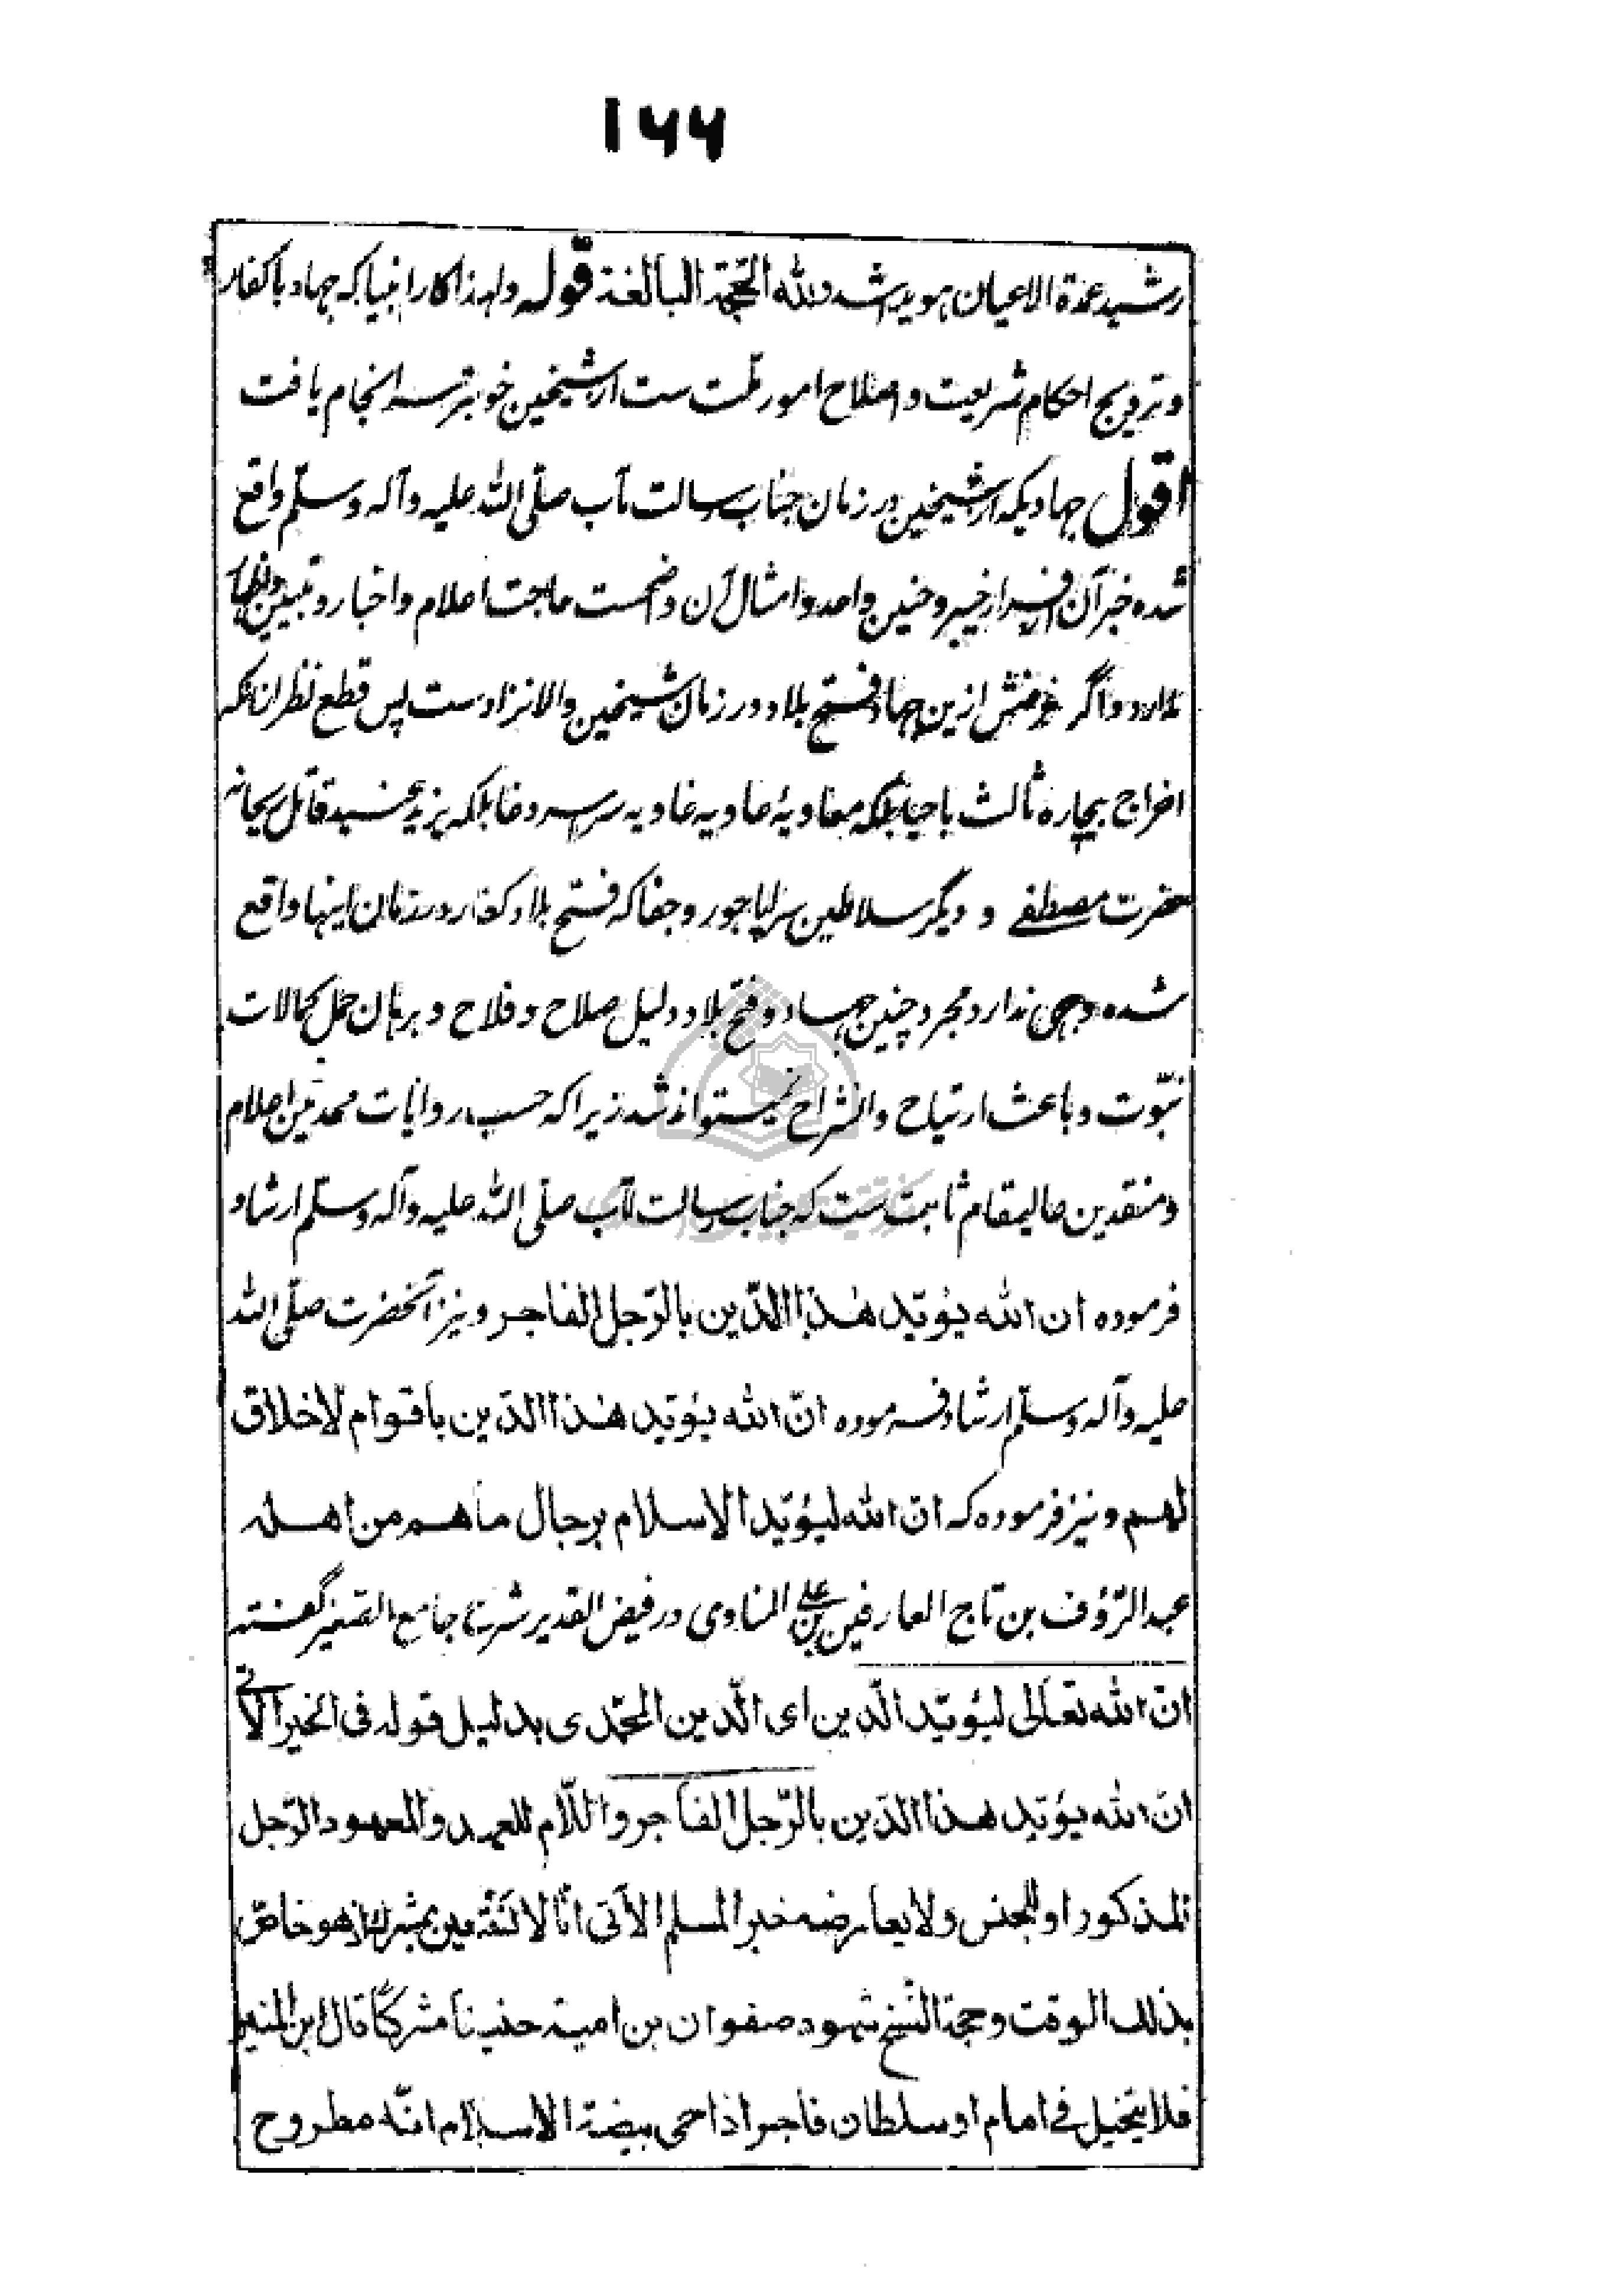 ۱۶۶
رشید عمدة الاعیان هویدا شد ولله الحجّة البالغة قوله ولهذا کار انبیا که جهاد با کفار
و ترویج احکام شریعت و اصلاح امور ملّت ست از شیخین خوبتر سرانجام یافت
اقول جهادیکه از شیخین در زمان جناب رسالت مآب صلّی الله علیه وآله وسلّم واقع
شده خبر آن از خیبر و حنین و احد و امثال آن واضحست حاجت اعلام و اخبار و تبیین و اظهار
ندارد و اگر غرضش ازین جهاد فتح بلاد در زمان شیخین والانژادست پس قطع نظر از آنکه
اخراج بیچاره ثالث باحیا بلکه معاویهٔ عاویه غاویه سراسر دغا بلکه یزید عنید قاتل ریحانه
حضرت مصطفی و دیگر سلاطین سراپا جور و جفا که فتح بلاد کفار در زمان اینها واقع
شده وجهی ندارد مجرد چنین جهاد و فتح بلاد دلیل صلاح و فلاح و برهان حمل کمالات
نبّوت و باعث ارتیاح و انشراح نمیتواند شد زیرا که حسب روایات محدثین اعلام
و منقدین عالیمقام ثابت ست که جناب رسالت مآب صلّی الله علیه وآله وسلّم ارشاد
فرموده ان الله یؤیّد هذا الدّین بالرّجل الفاجر و نیز آنحضرت صلّی الله
علیه وآله وسلّم ارشاد فرموده انّ الله یؤیّد هذا الدّین باقوام لاخلاق
لهم و نیز فرموده که انّ الله لیؤیّد الاسلام برجال ما هم من اهله
عبد الرّؤف بن تاج العارفین بن علی المناوی در فیض القدیر شرح جامع الصّغیر گفته
انّ الله تعالی لیؤیّد الّدین ای الّدین المحمّدی بدلیل قوله فی الخبر الآتی
انّ الله یؤیّد هذا الدّین بالرّجل الفاجر واللّام للعهد والمعهود الرّجل
المذکور او للجنس ولا یعارضه خبر المسلم الآتی انّا لا نستعین بمشرك اذ هو خاصّ
بذلك الوقت وحجة النّسخ شهود صفوان بن امیة حنینا مشرکًا قال ابن المنیر
فلا یتخیل فی امام او سلطان فاجر اذا حمی بیضة الاسلام انّه مطروح